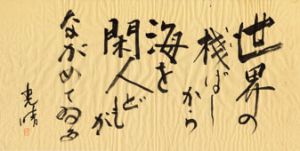 世界の
桟ばし
から
海を
閑人ども
が
ながめてゐる
光晴